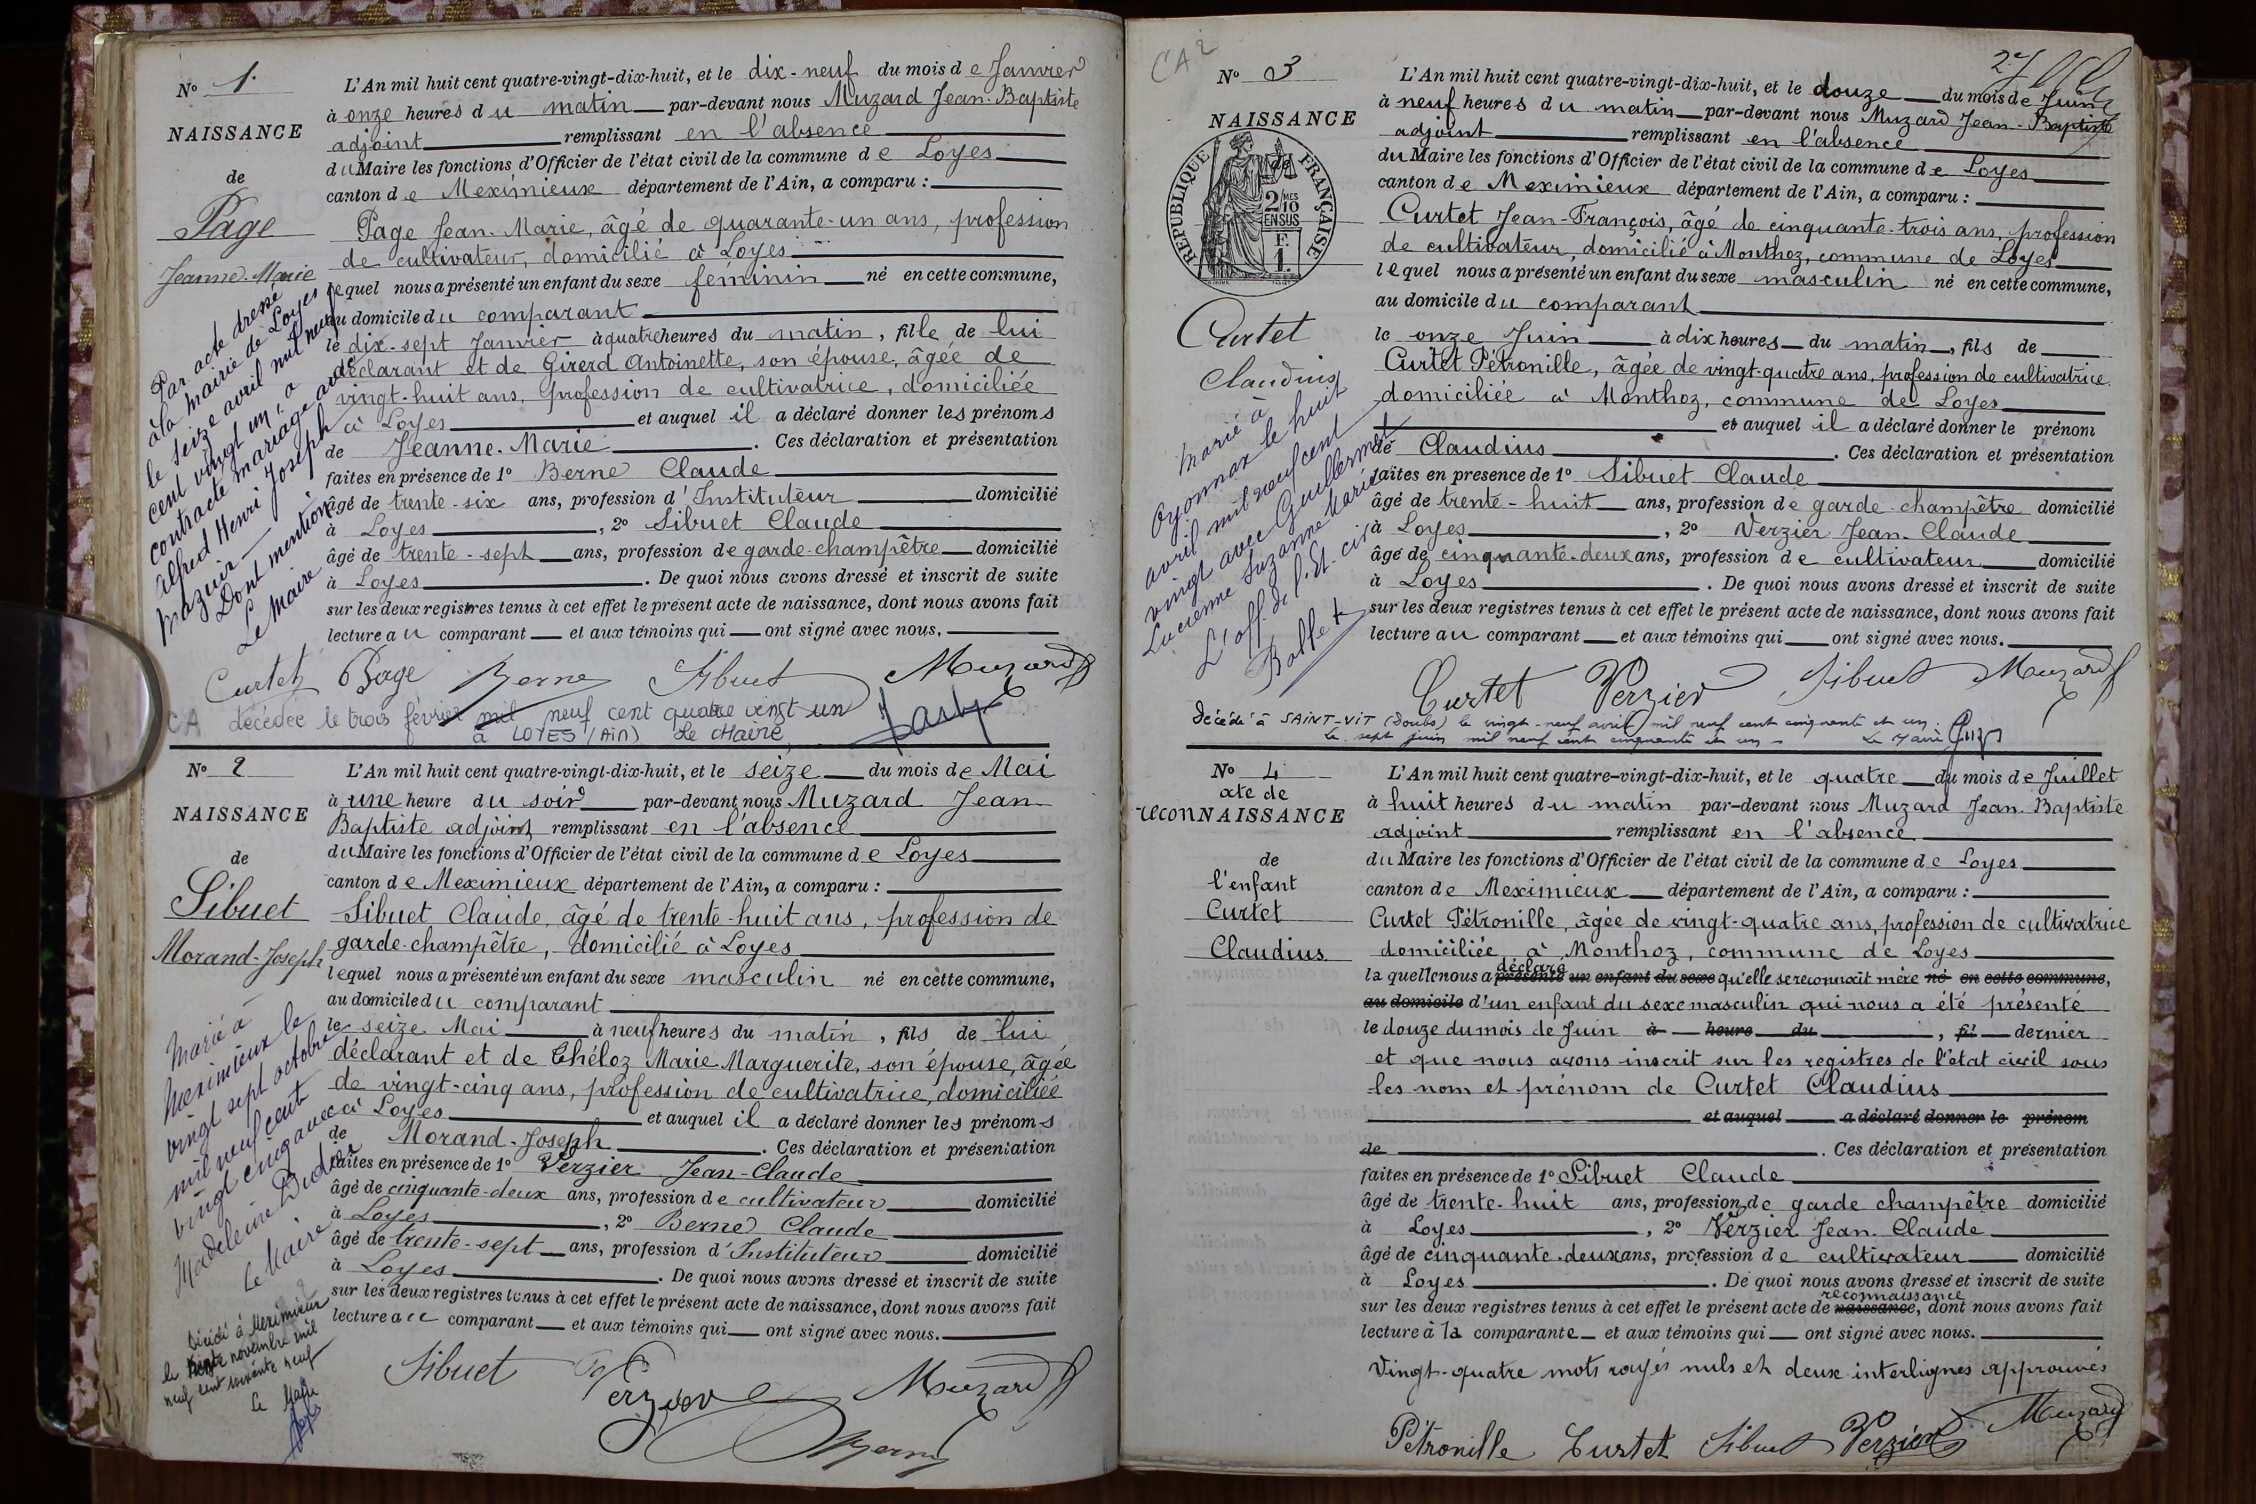 N° 1.
NAISSANCE
de
Page
Jeanne-Marie
L'An mil huit cent quatre-vingt-dix-huit, et le dix-neuf du mois de Janvier
à onze heures du matin par-devant nous Muzard Jean-Baptiste
adjoint remplissant en l'absence
du Maire les fonctions d'Officier de l'état civil de la commune de Loyes
canton de Meximieux département de l'Ain, a comparu :
Page Jean-Marie, âgé de quarante-un ans, profession
de cultivateur, domicilié à Loyes
lequel nous a présenté un enfant du sexe féminin né en cette commune,
au domicile du comparant
le dix-sept Janvier à quatre heures du matin, fille de lui
déclarant et de Girerd Antoinette, son épouse, âgée de
vingt-huit ans, profession de cultivatrice, domiciliée
à Loyes et auquel il a déclaré donner les prénoms
de Jeanne-Marie. Ces déclaration et présentation
faites en présence de 1° Berne Claude
âgé de trente-six ans, profession d'Instituteur domicilié
à Loyes, 2° Sibuet Claude
âgé de trente-sept ans, profession de garde-champêtre domicilié
à Loyes. De quoi nous avons dressé et inscrit de suite
sur les deux registres tenus à cet effet le présent acte de naissance, dont nous avons fait
lecture au comparant et aux témoins qui ont signé avec nous.
Par acte dressé
à la mairie de Loyes
le seize avril mil neuf
cent vingt un, a
contracté mariage avec
Alfred Henri Joseph
Mazuir
Dont mention
Le Maire
Curtet Page Berne Sibuet Muzard
CA décédée le trois février mil neuf cent quatre vingt un
à LOYES (Ain) Le Maire
N° 2
NAISSANCE
de
Sibuet
Morand-Joseph
L'An mil huit cent quatre-vingt-dix-huit, et le seize du mois de Mai
à une heure du soir par-devant nous Muzard Jean
Baptiste adjoint remplissant en l'absence
du Maire les fonctions d'Officier de l'état civil de la commune de Loyes
canton de Meximieux département de l'Ain, a comparu :
Sibuet Claude, âgé de trente-huit ans, profession de
garde-champêtre, domicilié à Loyes
lequel nous a présenté un enfant du sexe masculin né en cette commune,
au domicile du comparant
le seize Mai à neuf heures du matin, fils de lui
déclarant et de Théloz Marie Marguerite, son épouse, âgée
de vingt-cinq ans, profession de cultivatrice, domiciliée
à Loyes et auquel il a déclaré donner les prénoms
de Morand-Joseph. Ces déclaration et présentation
faites en présence de 1° Verzier Jean-Claude
âgé de cinquante-deux ans, profession de cultivateur domicilié
à Loyes, 2° Berne Claude
âgé de trente-sept ans, profession d'Instituteur domicilié
à Loyes. De quoi nous avons dressé et inscrit de suite
sur les deux registres tenus à cet effet le présent acte de naissance, dont nous avons fait
lecture au comparant et aux témoins qui ont signé avec nous.
Marié à
Meximieux le
vingt sept octobre
mil neuf cent
vingt cinq avec
Madeleine Didier
Le Maire
Décédé à Meximieux
le novembre mil
neuf cent soixante neuf
Le Maire
Sibuet Verzier Muzard
Berne
CA 2
N° 3
NAISSANCE
de
RÉPUBLIQUE FRANÇAISE
2/10MES
EN SUS
F.
1.
Curtet
Claudius
L'An mil huit cent quatre-vingt-dix-huit, et le douze du mois de Juin
à neuf heures du matin par-devant nous Muzard Jean-Baptiste
adjoint remplissant en l'absence
du Maire les fonctions d'Officier de l'état civil de la commune de Loyes
canton de Meximieux département de l'Ain, a comparu :
Curtet Jean-François, âgé de cinquante-trois ans, profession
de cultivateur, domicilié à Monthoz, commune de Loyes
lequel nous a présenté un enfant du sexe masculin né en cette commune,
au domicile du comparant
le onze Juin à dix heures du matin, fils de
Curtet Pétronille, âgée de vingt-quatre ans, profession de cultivatrice
domiciliée à Monthoz, commune de Loyes
et auquel il a déclaré donner le prénom
de Claudius. Ces déclaration et présentation
faites en présence de 1° Sibuet Claude
âgé de trente-huit ans, profession de garde champêtre domicilié
à Loyes, 2° Verzier Jean-Claude
âgé de cinquante-deux ans, profession de cultivateur domicilié
à Loyes. De quoi nous avons dressé et inscrit de suite
sur les deux registres tenus à cet effet le présent acte de naissance, dont nous avons fait
lecture au comparant et aux témoins qui ont signé avec nous.
Marié à
Oyonnax le huit
avril mil neuf cent
vingt avec Guillermet
Lucienne Suzanne Marie
L'off. de l'Et. civ
Ballet
Curtet Verzier Sibuet Muzard
Décédé à SAINT-VIT (Doubs) le vingt-neuf avril mil neuf cent cinquante et un.
Le sept juin mil neuf cent cinquante et un - Le Maire
N° 4
acte de
reconNAISSANCE
de
l'enfant
Curtet
Claudius
L'An mil huit cent quatre-vingt-dix-huit, et le quatre du mois de Juillet
à huit heures du matin par-devant nous Muzard Jean-Baptiste
adjoint remplissant en l'absence
du Maire les fonctions d'Officier de l'état civil de la commune de Loyes
canton de Meximieux département de l'Ain, a comparu :
Curtet Pétronille, âgée de vingt-quatre ans, profession de cultivatrice
domiciliée à Monthoz, commune de Loyes
déclaré
laquelle nous a présenté un enfant du sexe qu'elle se reconnaît mère né en cette commune,
au domicile d'un enfant du sexe masculin qui nous a été présenté
le douze du mois de Juin à heure du, fil dernier
et que nous avons inscrit sur les registres de l'état civil sous
les nom et prénom de Curtet Claudius
et auquel a déclaré donner le prénom
de. Ces déclaration et présentation
faites en présence de 1° Sibuet Claude
âgé de trente-huit ans, profession de garde champêtre domicilié
à Loyes, 2° Verzier Jean-Claude
âgé de cinquante-deux ans, profession de cultivateur domicilié
à Loyes. De quoi nous avons dressé et inscrit de suite
reconnaissance
sur les deux registres tenus à cet effet le présent acte de naissance, dont nous avons fait
lecture à la comparante et aux témoins qui ont signé avec nous.
Vingt-quatre mots rayés nuls et deux interlignes approuvés
Pétronille Curtet Sibuet Verzier Muzard